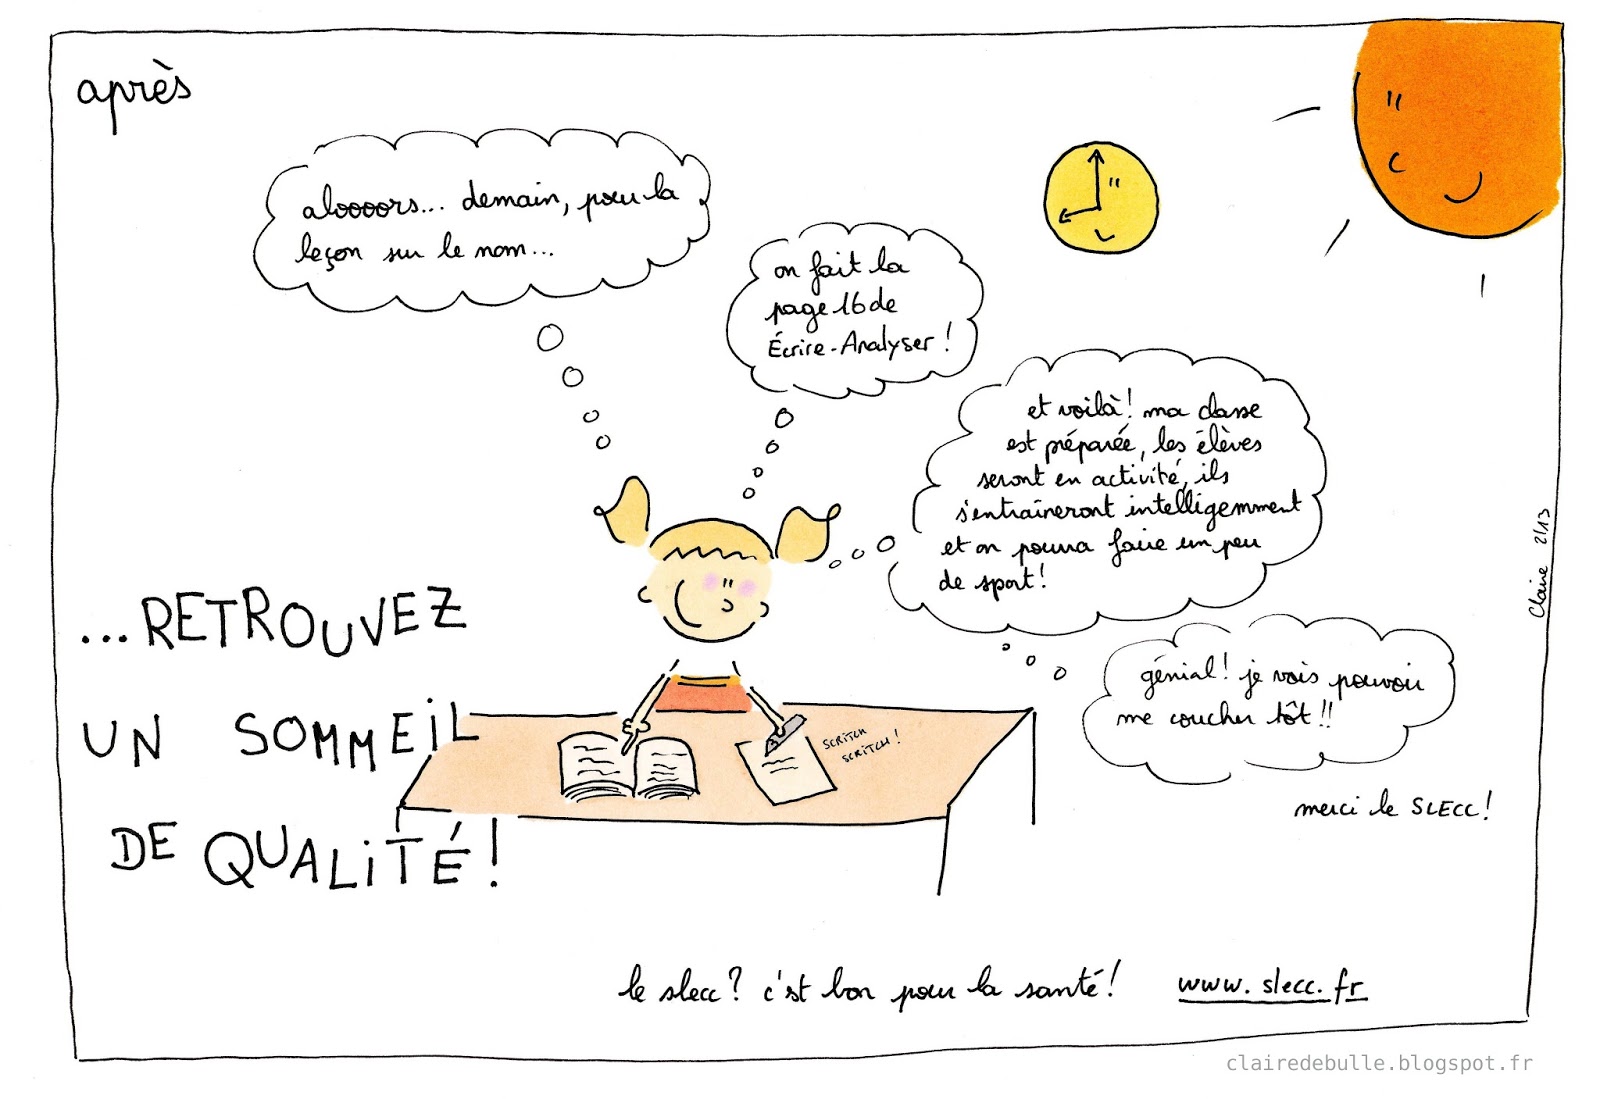 après
aloooors... demain, pour la
leçon sur le nom...
on fait la
page 16 de
Écrire-Analyser !
et voilà ! ma classe
est préparée, les élèves
seront en activité, ils
s'entraîneront intelligemment
et on pourra faire un peu
de sport !
génial ! je vais pouvoir
me coucher tôt !!
merci le SLECC !
SCRITCH
SCRITCH !
...RETROUVEZ
UN SOMMEIL
DE QUALITÉ !
le slecc ? c'est bon pour la santé ! www.slecc.fr
Claire 2/13
clairedebulle.blogspot.fr